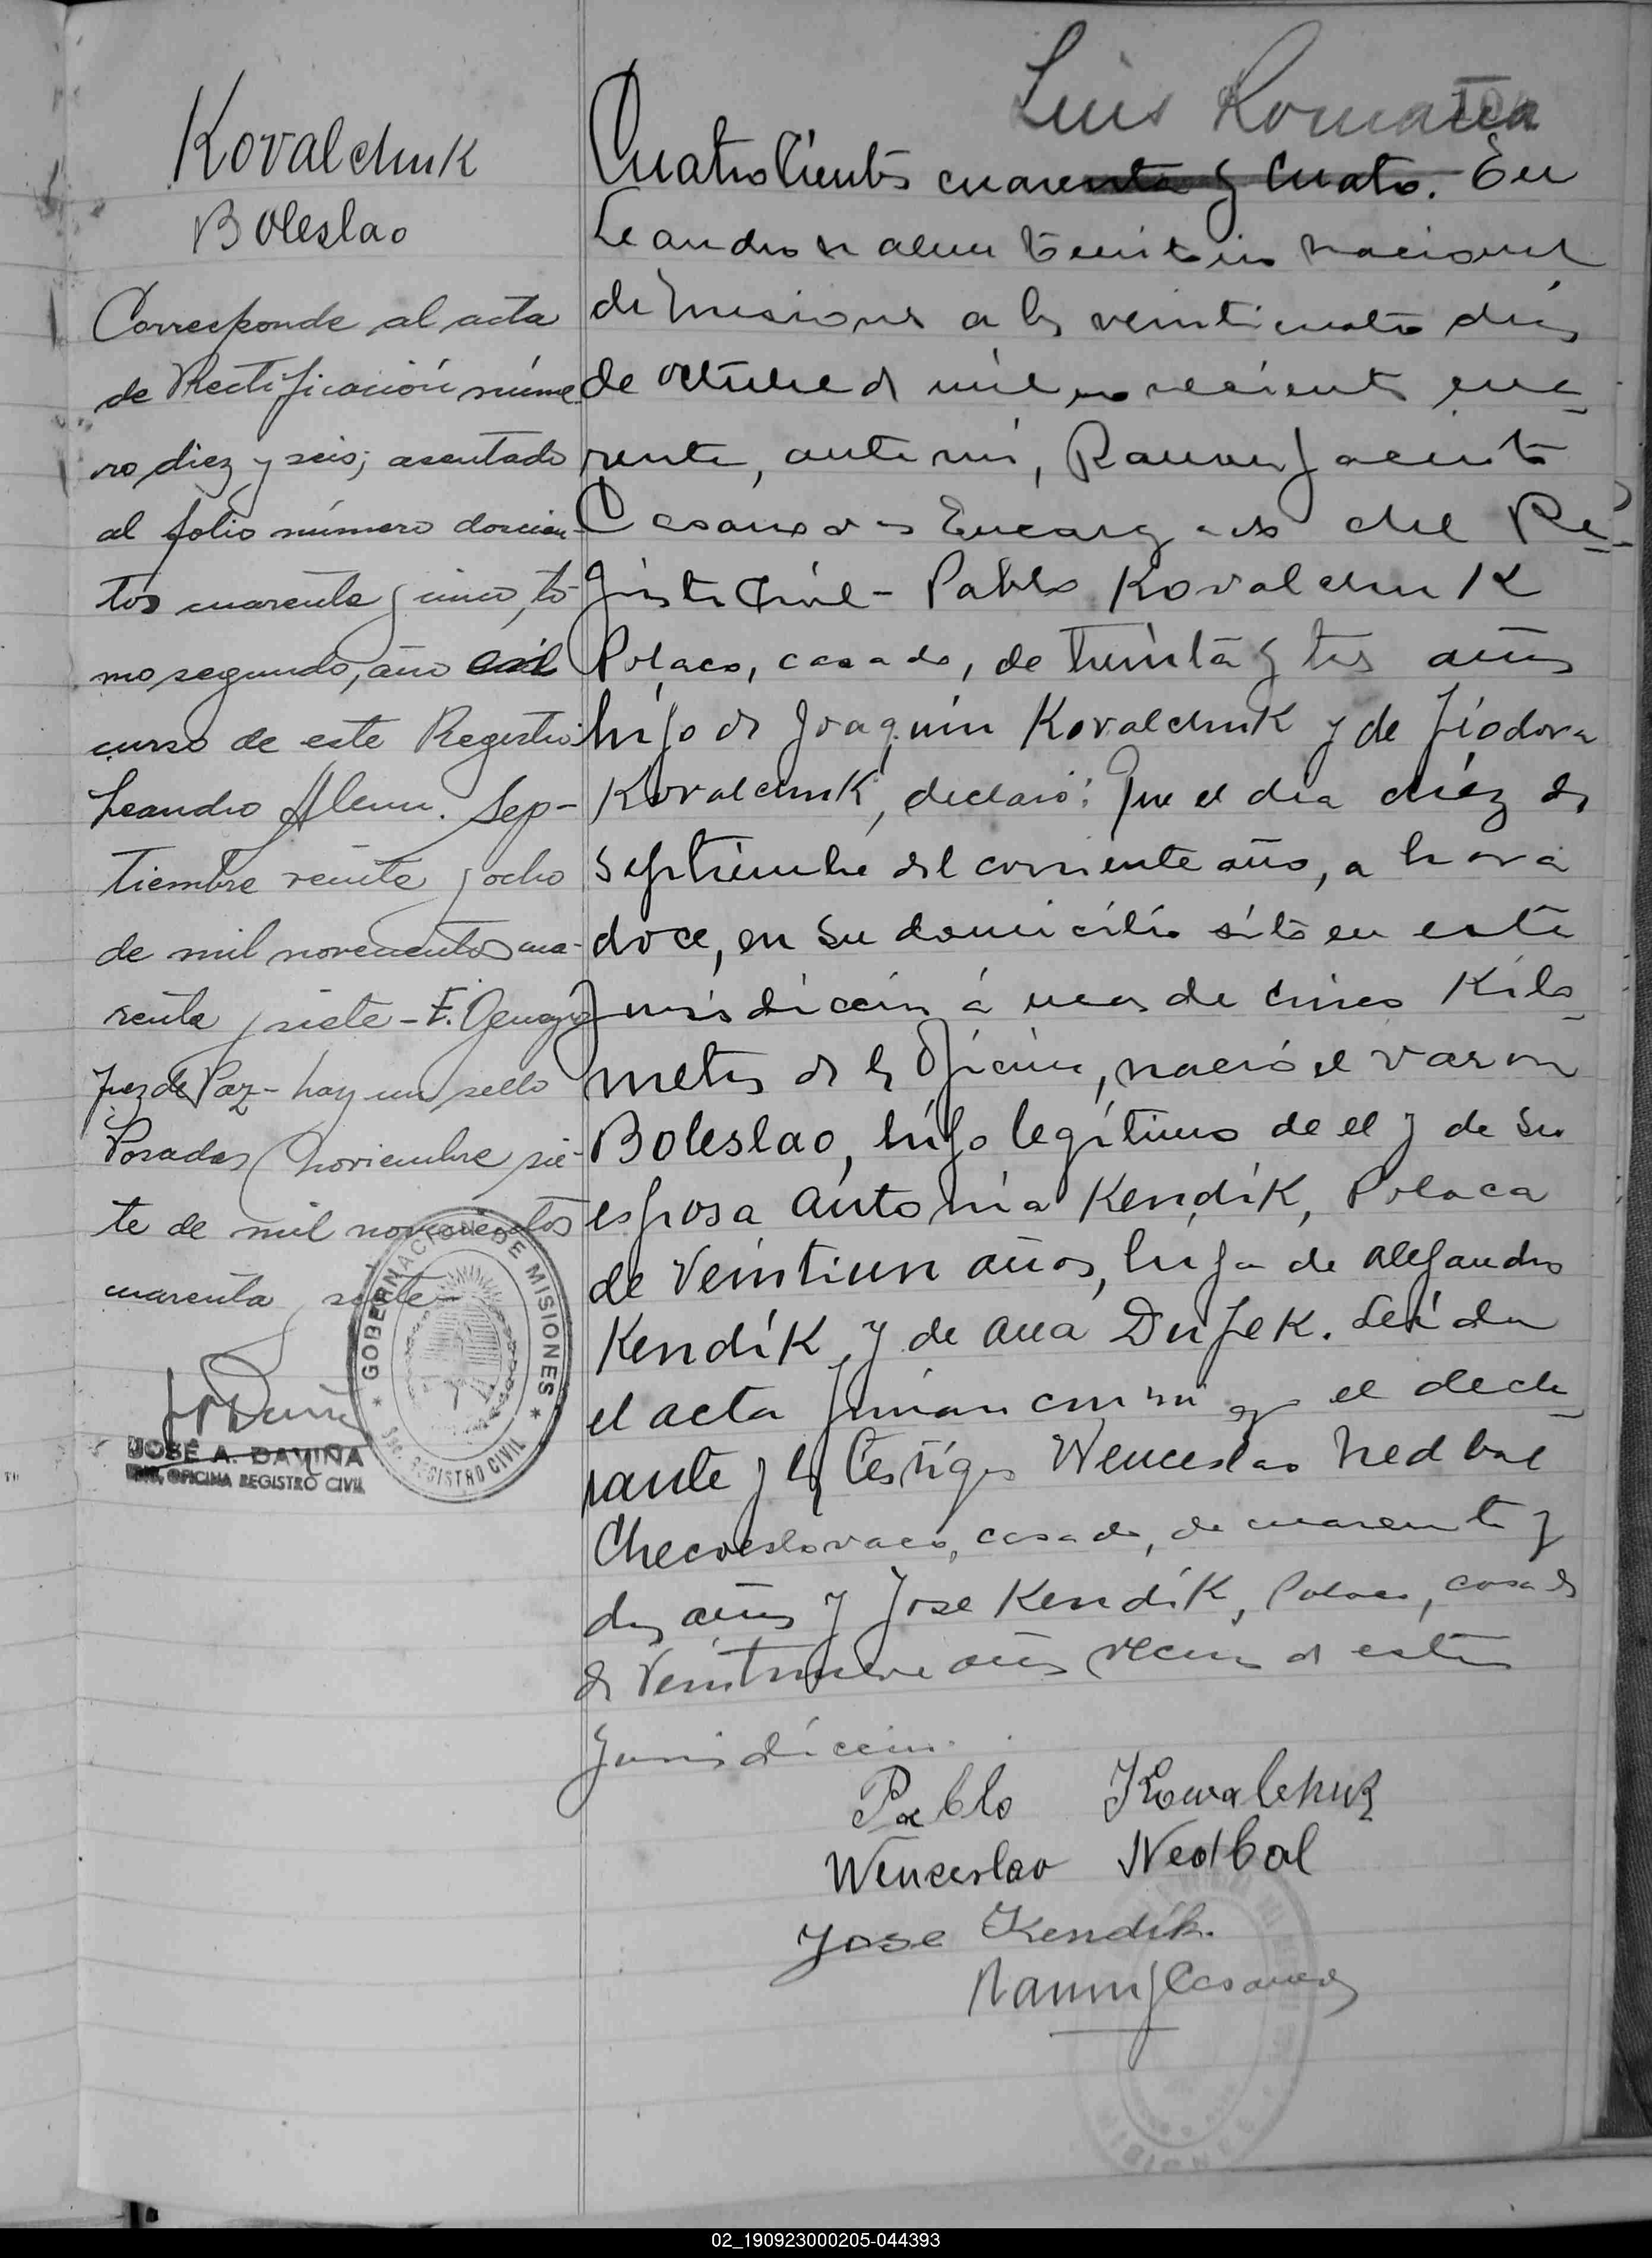 Kovalchuk
Boleslao
Corresponde al acta
de Rectificación núme-
ro diez y seis; asentado
al folio número doscien-
tos cuarenta y cinco, to-
mo segundo, año en
curso de este Registro
Leandro Alem. Sep-
tiembre veinte y ocho
de mil novecientos cua-
renta y siete - F.
Juez de Paz - hay un sello
Posadas, noviembre sie-
te de mil novecientos
cuarenta y siete
GOBERNACION DE MISIONES
SEC. REGISTRO CIVIL
JOSÉ A. DAVIÑA
OFICINA REGISTRO CIVIL
Luis
Cuatrocientos cuarenta y cuatro. En
Leandro N Alem Territorio Nacional
de Misiones a los veinticuatro días
de octubre de mil novecientos cua-
renta, ante mí, Ramon Jacinto
Casanova Encargado del Re-
gistro Civil - Pablo Kovalchuk
Polaco, casado, de treinta y tres años
hijo de Joaquin Kovalchuk y de Fiodora
Kovalchuk, declaró: Que el día diez de
septiembre del corriente año, a hora
doce, en su domicilio sito en esta
Jurisdiccion á unos de cinco Kilo-
metros de la Oficina, nació el varon
Boleslao, hijo legítimo de el y de su
esposa Antonia Kendik, Polaca
de Veintiun años, hija de Alejandro
Kendik y de Ana Dufek. Leída
el acta firman conmigo el decla-
rante y los testigos Wenceslao Nedbal
Checoeslovaco, casado, de cuarenta y
dos años y Jose Kendik, Polaco, casado
de Veintinueve años vecinos de esta
Jurisdiccion.
Pablo Kowalchuk
Wenceslao Nedbal
Jose Kendik.
Ramon J Casanova
02_190923000205-044393